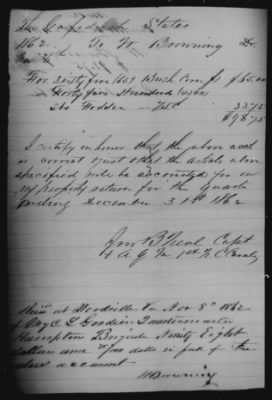 The Confederate States
1862. To W Browning Dr.
Nov 8th
For Sixty five (65) Bush Corn $1 $65.00
Forty five Hundred (4500)
lbs Fodder 75c 33.75
$98.75
I certify on honor that the above acct
is correct & just & that the articles above
specified will be accounted for on
my property return for the Quarter
ending December 31st 1862
Jno B Neal Capt
& A Q M 1st N C Cavalry
Recd at Woodville Va Nov 8th 1862
of Maj C L Goodwin Quartermaster
Hampton Brigade Ninety Eight
dollars and 75/100 dolls in full of the
above account
W Browning